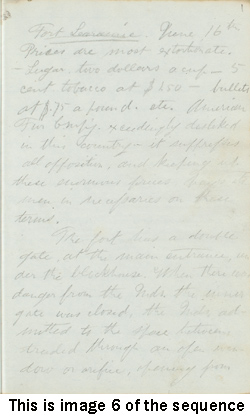 Fort Laramie. June 16th
Prices are most extortionate.
Sugar two dollars a cup – 5
cent tobacco at $1.50 – bullets
at $.75 a pound. etc. American
Fur Comp'y. exceedingly disliked
in this country – it suppresses
all opposition, and keeping up
these enormous prices pays its
men in necessaries on these
terms.
The fort has a double
gate, at the main entrance, un-
der the blockhouse. When there was
danger from the Inds. the inner
gate was closed, the Inds. ad-
mitted to the space between
traded through an open win-
dow or orifice, opening from
This is image 6 of the sequence